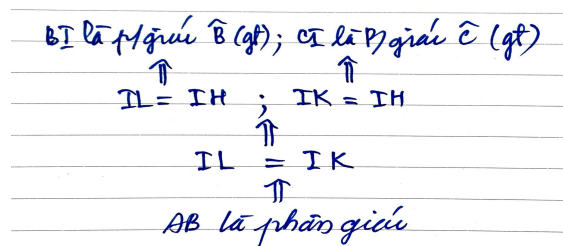 BI là p/giác B̂ (gt); CI là P/giác Ĉ (gt)
⇑ ⇑
IL = IH ; IK = IH
⇑
IL = IK
⇑
AB là phân giác